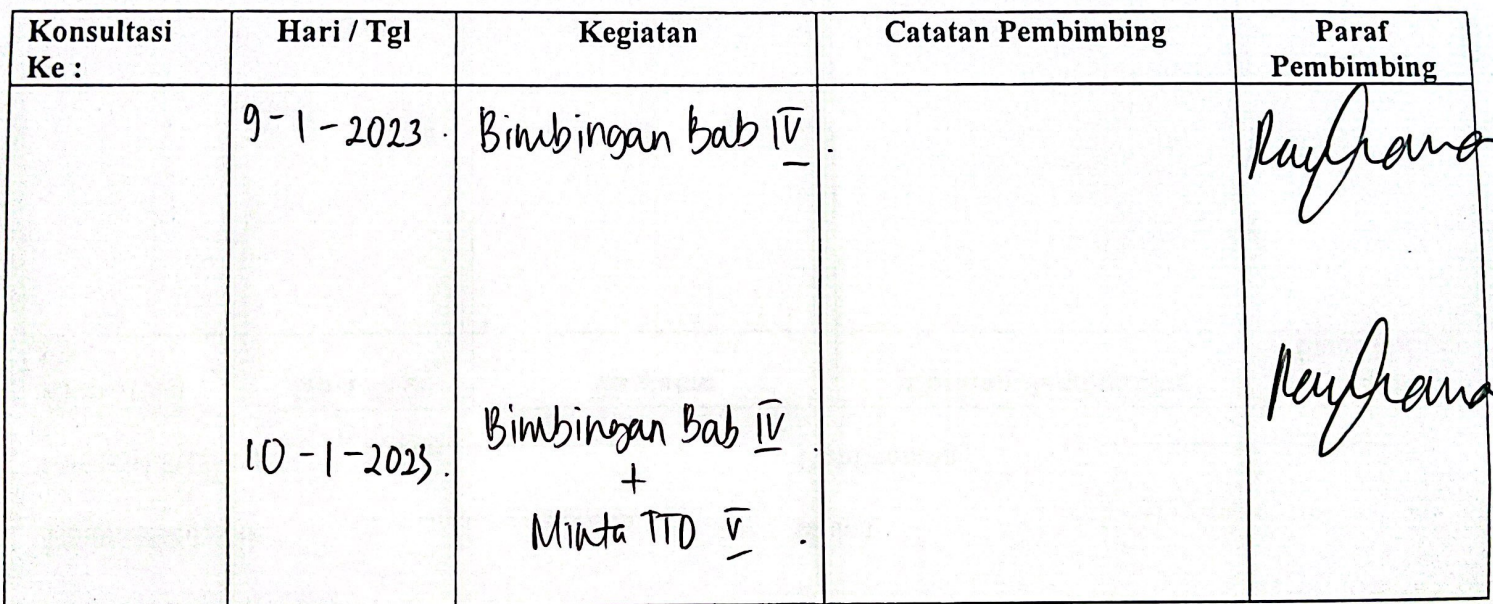 Konsultasi Ke :
Hari / Tgl
Kegiatan
Catatan Pembimbing
Paraf Pembimbing
9-1-2023.
Bimbingan Bab IV.
10-1-2023.
Bimbingan Bab IV.
+
Minta TTD V.